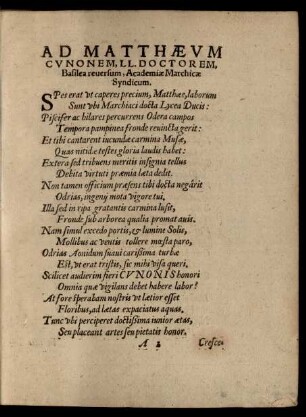 AD MATTHÆVM
CVNONEM, LL. DOCTOREM,
Basilea reuersum, Academiæ Marchicæ
Syndicum.
SPes erat vt caperes precium, Matthæe, laborum
Sunt vbi Marchiaci docta Lycea Ducis:
Piscifer ac hilares percurrens Odera campos
Tempora pampinea fronde reuincta gerit:
Et tibi cantarent iucundæ carmina Musæ,
Quas nitidæ testes gloria laudis habet:
Extera sed tribuens meritis insignia tellus
Debita virtuti præmia læta dedit.
Non tamen officium præsens tibi docta negârit
Odrias, ingenij mota vigore tui,
Illa sed in ripa gratantis carmina lusit,
Fronde sub arborea qualia promat auis.
Nam simul excedo portis, & lumine Solis,
Mollibus ac ventis tollere mœsta paro,
Odrias Aonidum suaui carissima turbæ
Est, vt erat tristis, sic mihi visa queri.
Scilicet audierim fieri CVNONIS honori
Omnia quæ vigilans debet habere labor?
At fore sperabam nostris vt lætior esset
Floribus, ad lætas expaciatus aquas.
Tunc vbi perciperet doctissima iunior ætas,
Seu placeant artes seu pietatis honor.
A 2 Cresce-